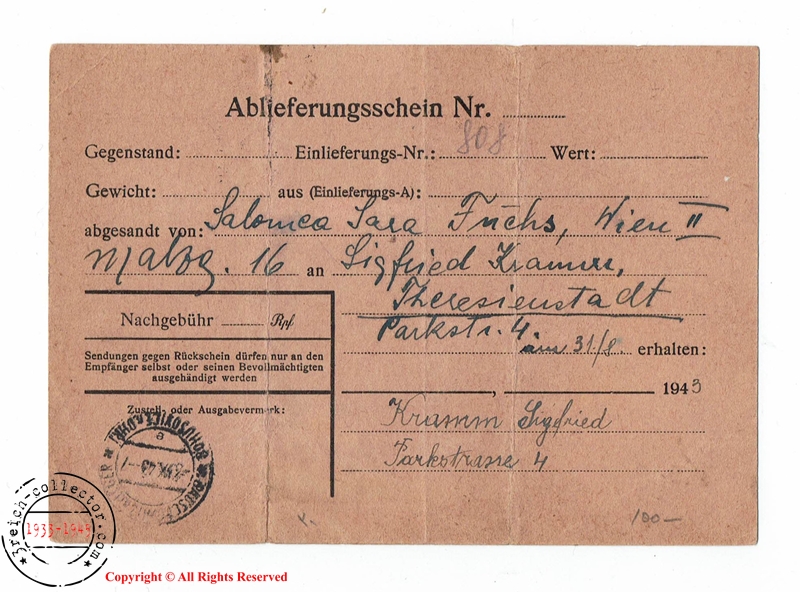 Ablieferungsschein Nr. ............
Gegenstand: ............ Einlieferungs-Nr.: 808 Wert: ............
Gewicht: ............ aus (Einlieferungs-A): ............
abgesandt von: Salomea Sara Fuchs, Wien II
Malzg. 16 an Sigfried Kramer,
Theresienstadt
Parkstr. 4.
am 31/8. erhalten:
Nachgebühr ........ Rpf
Sendungen gegen Rückschein dürfen nur an den
Empfänger selbst oder seinen Bevollmächtigten
ausgehändigt werden
1943
Zustell- oder Ausgabevermerk:
Kramm Sigfried
Parkstrasse 4
BAUSCHOWITZ
BOHUŠOVICE
e
100—
3reich-collector.com
1933-1945
Copyright © All Rights Reserved